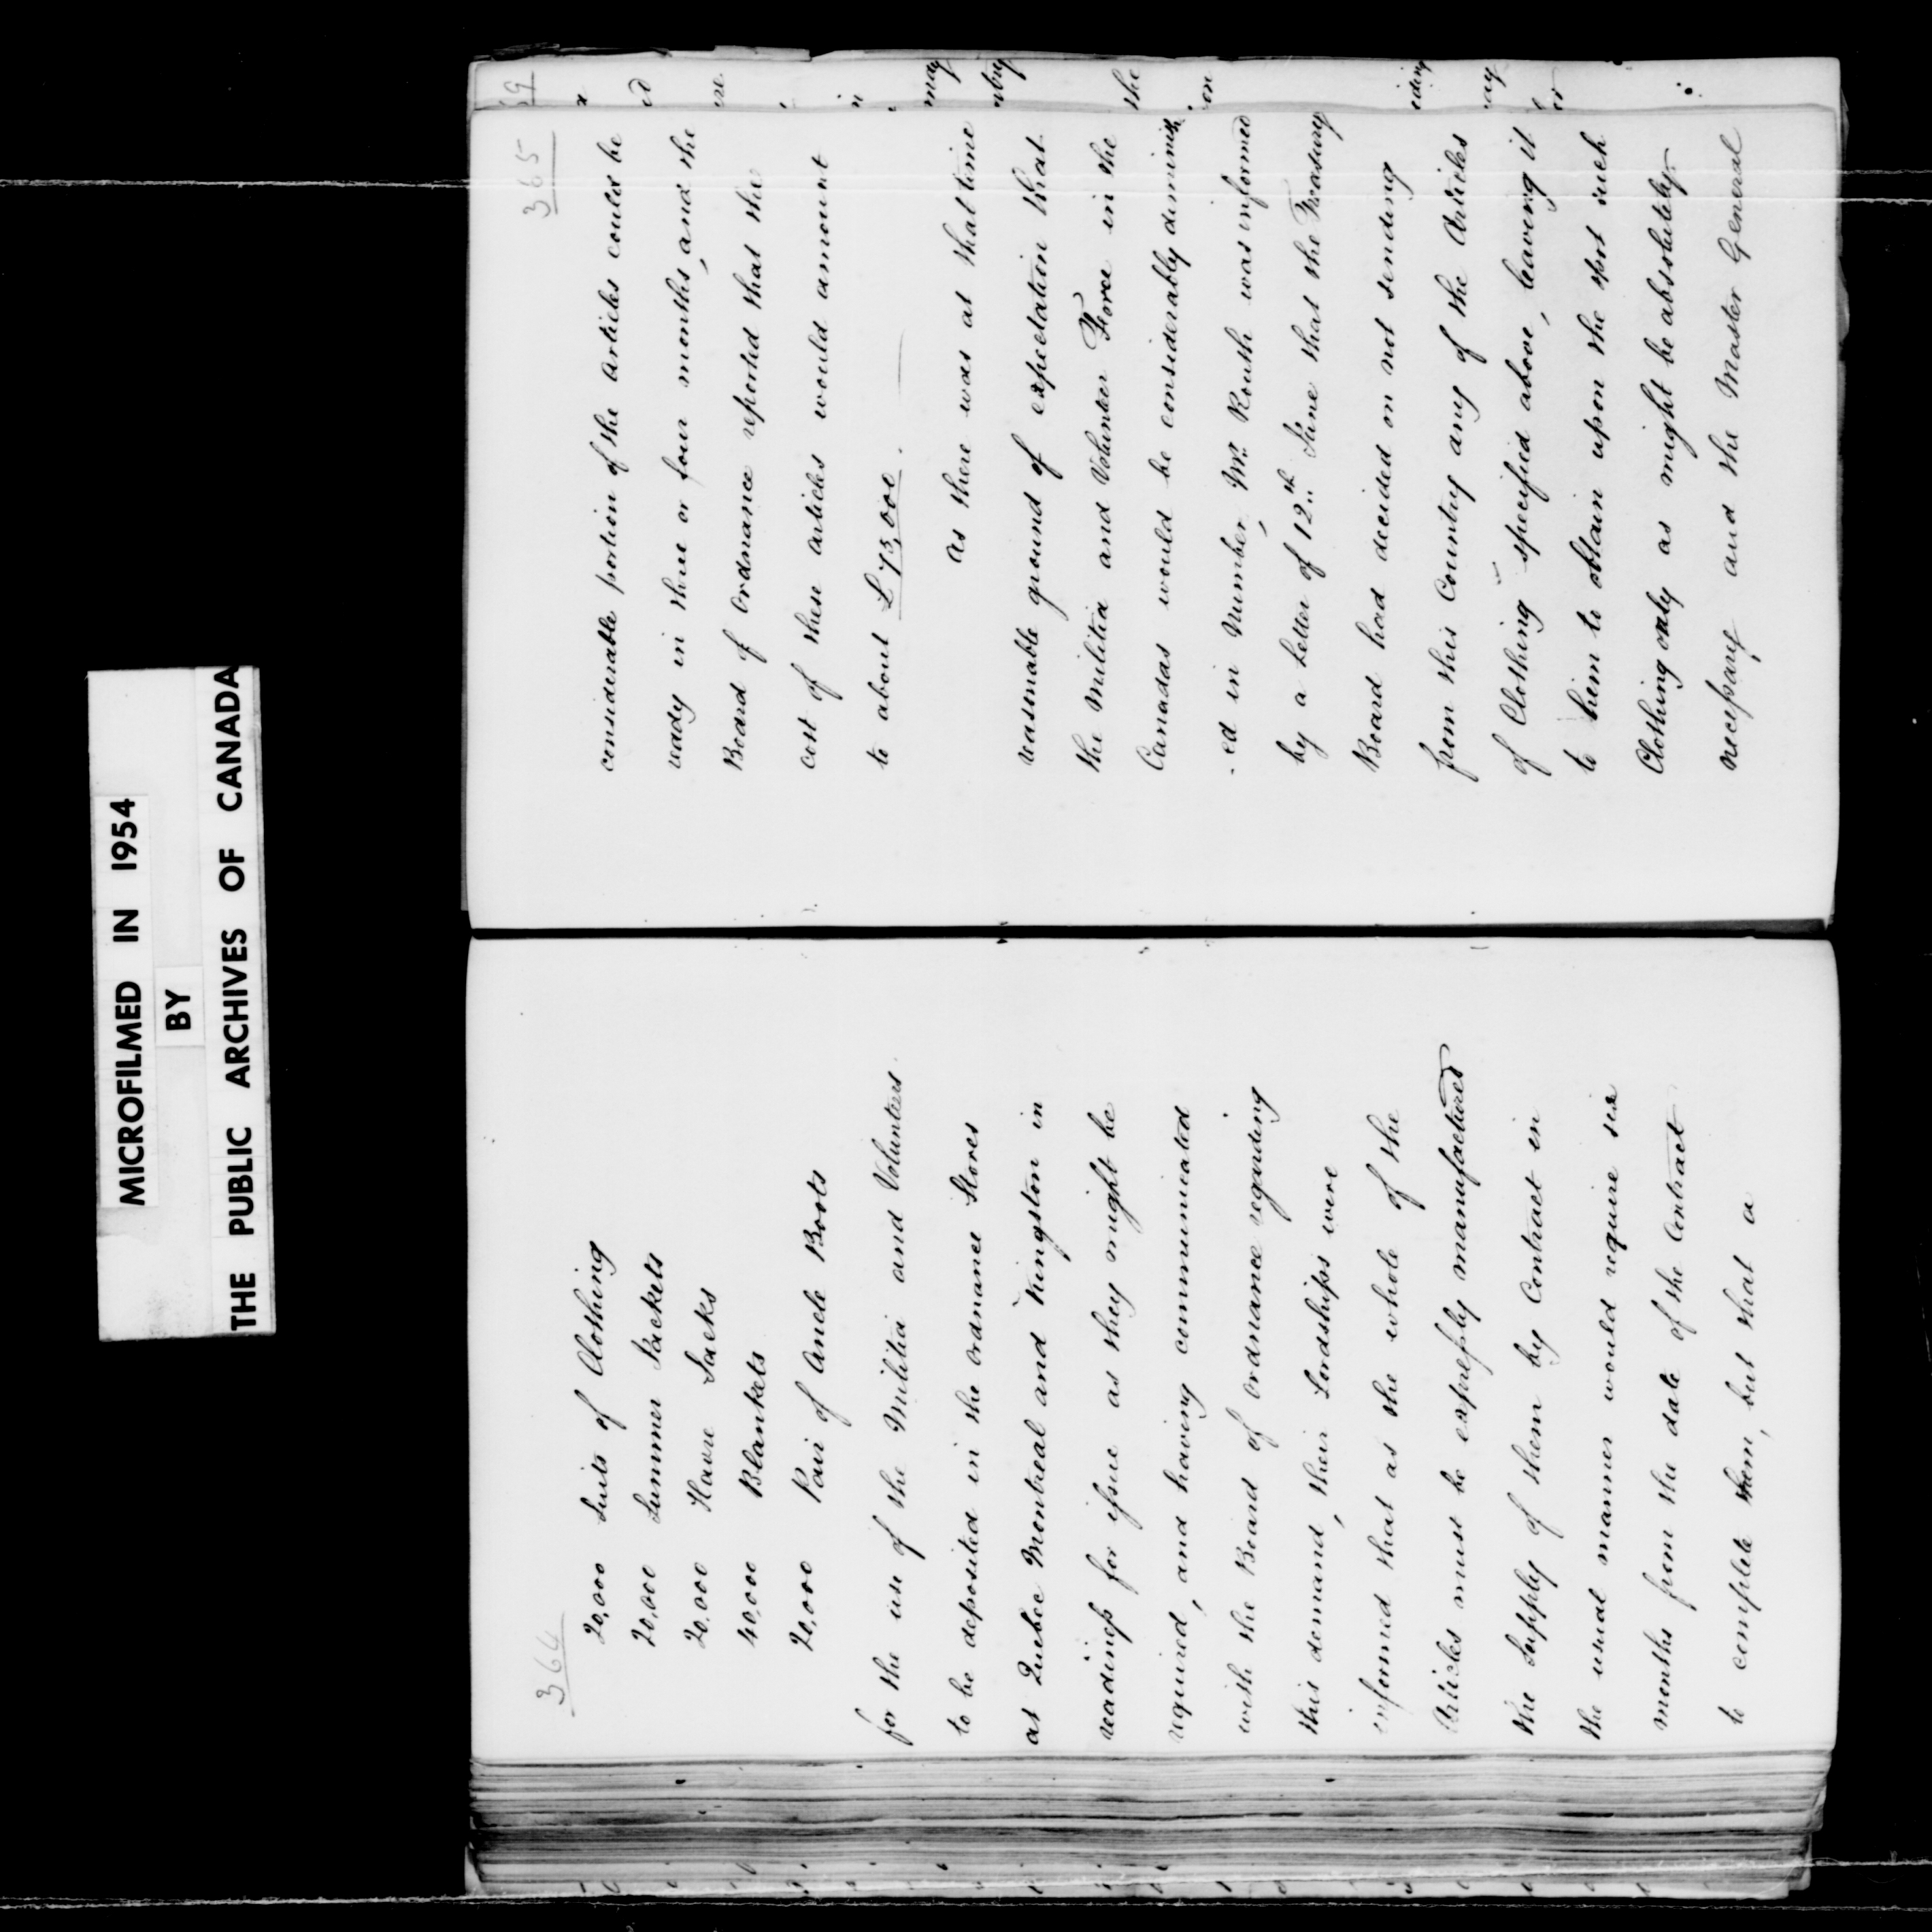 MICROFILMED IN 1954
BY
THE PUBLIC ARCHIVES OF CANADA
364
20,000 Suits of Clothing
20,000 Summer Jackets
20,000 Havre Sacks
40,000 Blankets
20,000 Pair of Ancle Boots
for the use of the Militia and Volunteers
to be deposited in the Ordnance Stores
at Quebec Montreal and Kingston in
readiness for issue as they might be
required, and having communicated
with the Board of Ordnance regarding
this demand, their Lordships were
informed that as the whole of the
Articles must be expressly manufactured
the Supply of them by Contract in
the usual manner would require six
months from the date of the Contract
to complete them, but that a
365
considerable portion of the Articles could be
ready in three or four months, and the
Board of Ordnance reported that the
cost of these articles would amount
to about £73,000.
As there was at that time
reasonable ground of expectation that
the Militia and Volunteer Force in the
Canadas would be considerably diminish
-ed in Number, Mr. Routh was informed
by a Letter of 12th June that the Treasury
Board had decided on not sending
from this Country any of the Articles
of Clothing specified above, leaving it
to him to obtain upon the spot such
Clothing only as might be absolutely
necessary and the Master General